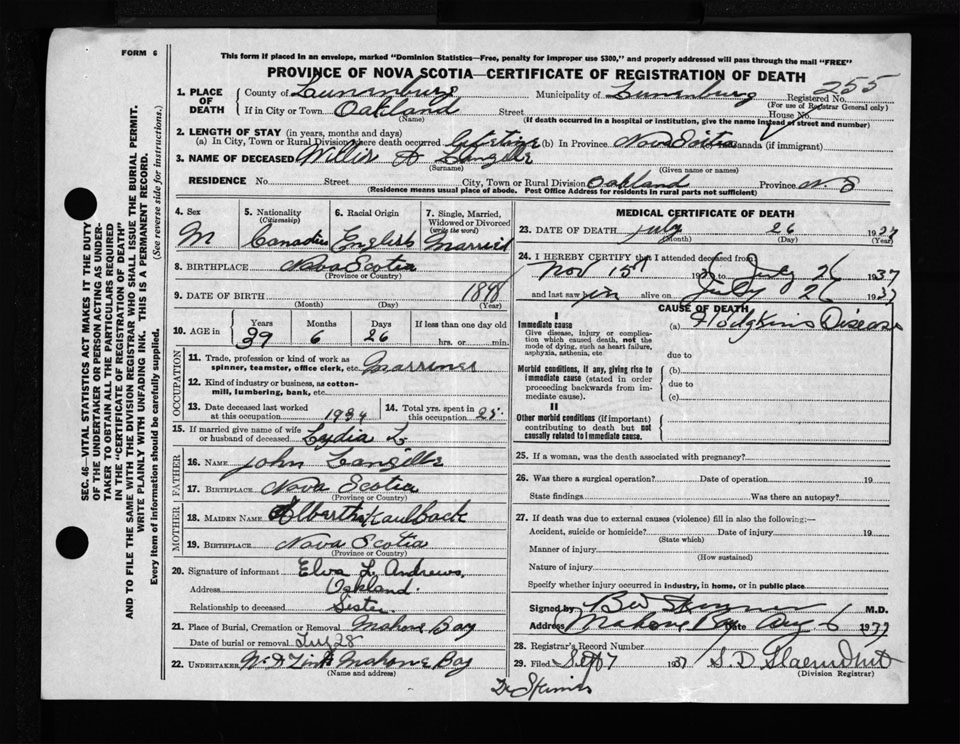 FORM 6
This form if placed in an envelope, marked "Dominion Statistics—Free, penalty for improper use $300," and properly addressed will pass through the mail "FREE"
PROVINCE OF NOVA SCOTIA—CERTIFICATE OF REGISTRATION OF DEATH
1. PLACE OF DEATH County of Lunenburg Municipality of Lunenburg Registered No. 255
(For use of Registrar General only)
If in City or Town Oakland Street House No.
(Name) (If death occurred in a hospital or institution, give the name instead of street and number)
2. LENGTH OF STAY (in years, months and days)
(a) In City, Town or Rural Division where death occurred Lifetime (b) In Province Nova Scotia Canada (if immigrant)
3. NAME OF DECEASED Willis A Langille
(Surname) (Given name or names)
RESIDENCE No. Street City, Town or Rural Division Oakland Province N. S
(Residence means usual place of abode. Post Office Address for residents in rural parts not sufficient)
4. Sex 5. Nationality (Citizenship) 6. Racial Origin 7. Single, Married, Widowed or Divorced (write the word)
M Canadian English Married
8. BIRTHPLACE Nova Scotia
(Province or Country)
9. DATE OF BIRTH 1898
(Month) (Day) (Year)
10. AGE in Years Months Days If less than one day old
39 6 26 hrs. or min.
OCCUPATION
11. Trade, profession or kind of work as spinner, teamster, office clerk, etc. Marriner
12. Kind of industry or business, as cotton-mill, lumbering, bank, etc.
13. Date deceased last worked at this occupation 1934 14. Total yrs. spent in this occupation 25
15. If married give name of wife or husband of deceased Lydia L.
FATHER
16. NAME John Langille
17. BIRTHPLACE Nova Scotia
(Province or Country)
MOTHER
18. MAIDEN NAME Albertha Kaulback
19. BIRTHPLACE Nova Scotia
(Province or Country)
20. Signature of informant Elva L. Andrews
Address Oakland
Relationship to deceased Sister
21. Place of Burial, Cremation or Removal Mahone Bay
Date of burial or removal July 28
22. UNDERTAKER Mahone Bay
(Name and address)
MEDICAL CERTIFICATE OF DEATH
23. DATE OF DEATH July 26 1937
(Month) (Day) (Year)
24. I HEREBY CERTIFY that I attended deceased from:
Nov 15th 193 to July 26 1937
and last saw him alive on July 26 1937
CAUSE OF DEATH
I
Immediate cause (a) Hodgkins Disease
Give disease, injury or complication which caused death, not the mode of dying, such as heart failure, asphyxia, asthenia, etc.
due to
Morbid conditions, if any, giving rise to immediate cause (stated in order proceeding backwards from immediate cause).
(b)
due to
(c)
II
Other morbid conditions (if important) contributing to death but not causally related to immediate cause.
25. If a woman, was the death associated with pregnancy?
26. Was there a surgical operation? Date of operation 19
State findings Was there an autopsy?
27. If death was due to external causes (violence) fill in also the following:—
Accident, suicide or homicide? Date of injury 19
(State which)
Manner of injury
(How sustained)
Nature of injury
Specify whether injury occurred in industry, in home, or in public place
Signed by M.D.
Address Mahone Bay Date Aug 6 1937
28. Registrar's Record Number
29. Filed Sept 7 1937 S. D.
(Division Registrar)
SEC. 46—VITAL STATISTICS ACT MAKES IT THE DUTY
OF THE UNDERTAKER OR PERSON ACTING AS UNDER-
TAKER TO OBTAIN ALL THE PARTICULARS REQUIRED
IN THE "CERTIFICATE OF REGISTRATION OF DEATH"
AND TO FILE THE SAME WITH THE DIVISION REGISTRAR WHO SHALL ISSUE THE BURIAL PERMIT.
WRITE PLAINLY WITH UNFADING INK. THIS IS A PERMANENT RECORD.
Every item of information should be carefully supplied. (See reverse side for instructions.)